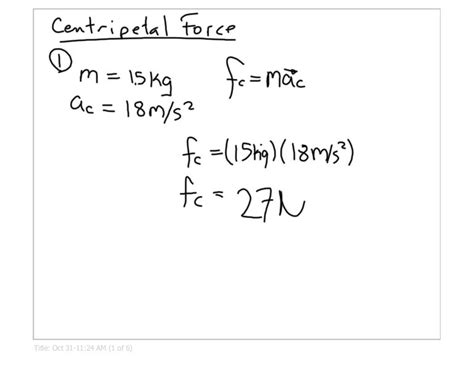 Centripetal Force
① m = 15kg    f_c = ma⃗_c
a_c = 18m/s²
f_c = (15kg)(18m/s²)
f_c = 27N
Title: Oct 31-11:24 AM (1 of 6)